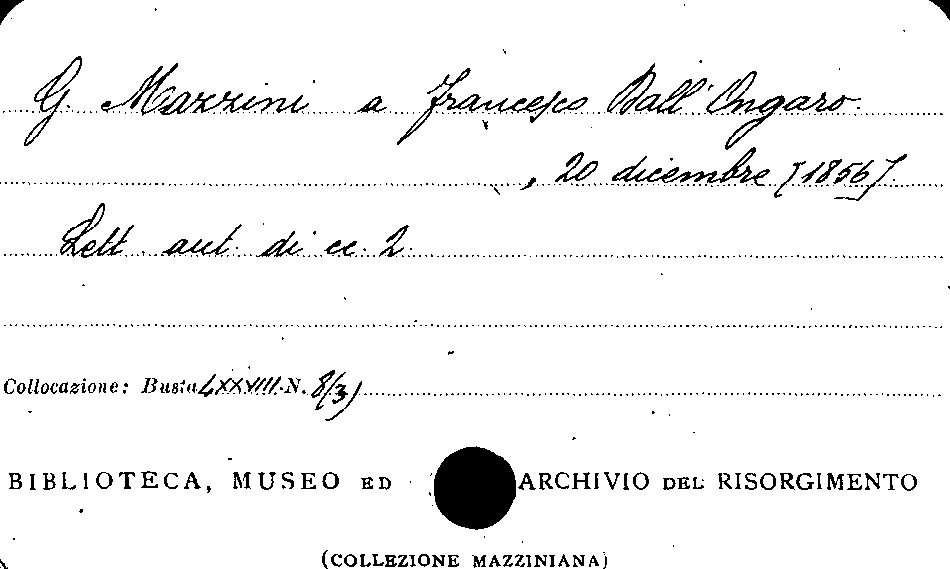 G. Mazzini a Francesco Dall'Ongaro.
, 20 dicembre [1856].
Lett. aut. di cc. 2.
Collocazione: Busta LXXVIII. N. 8(3)
BIBLIOTECA, MUSEO ED ARCHIVIO DEL RISORGIMENTO
(COLLEZIONE MAZZINIANA)